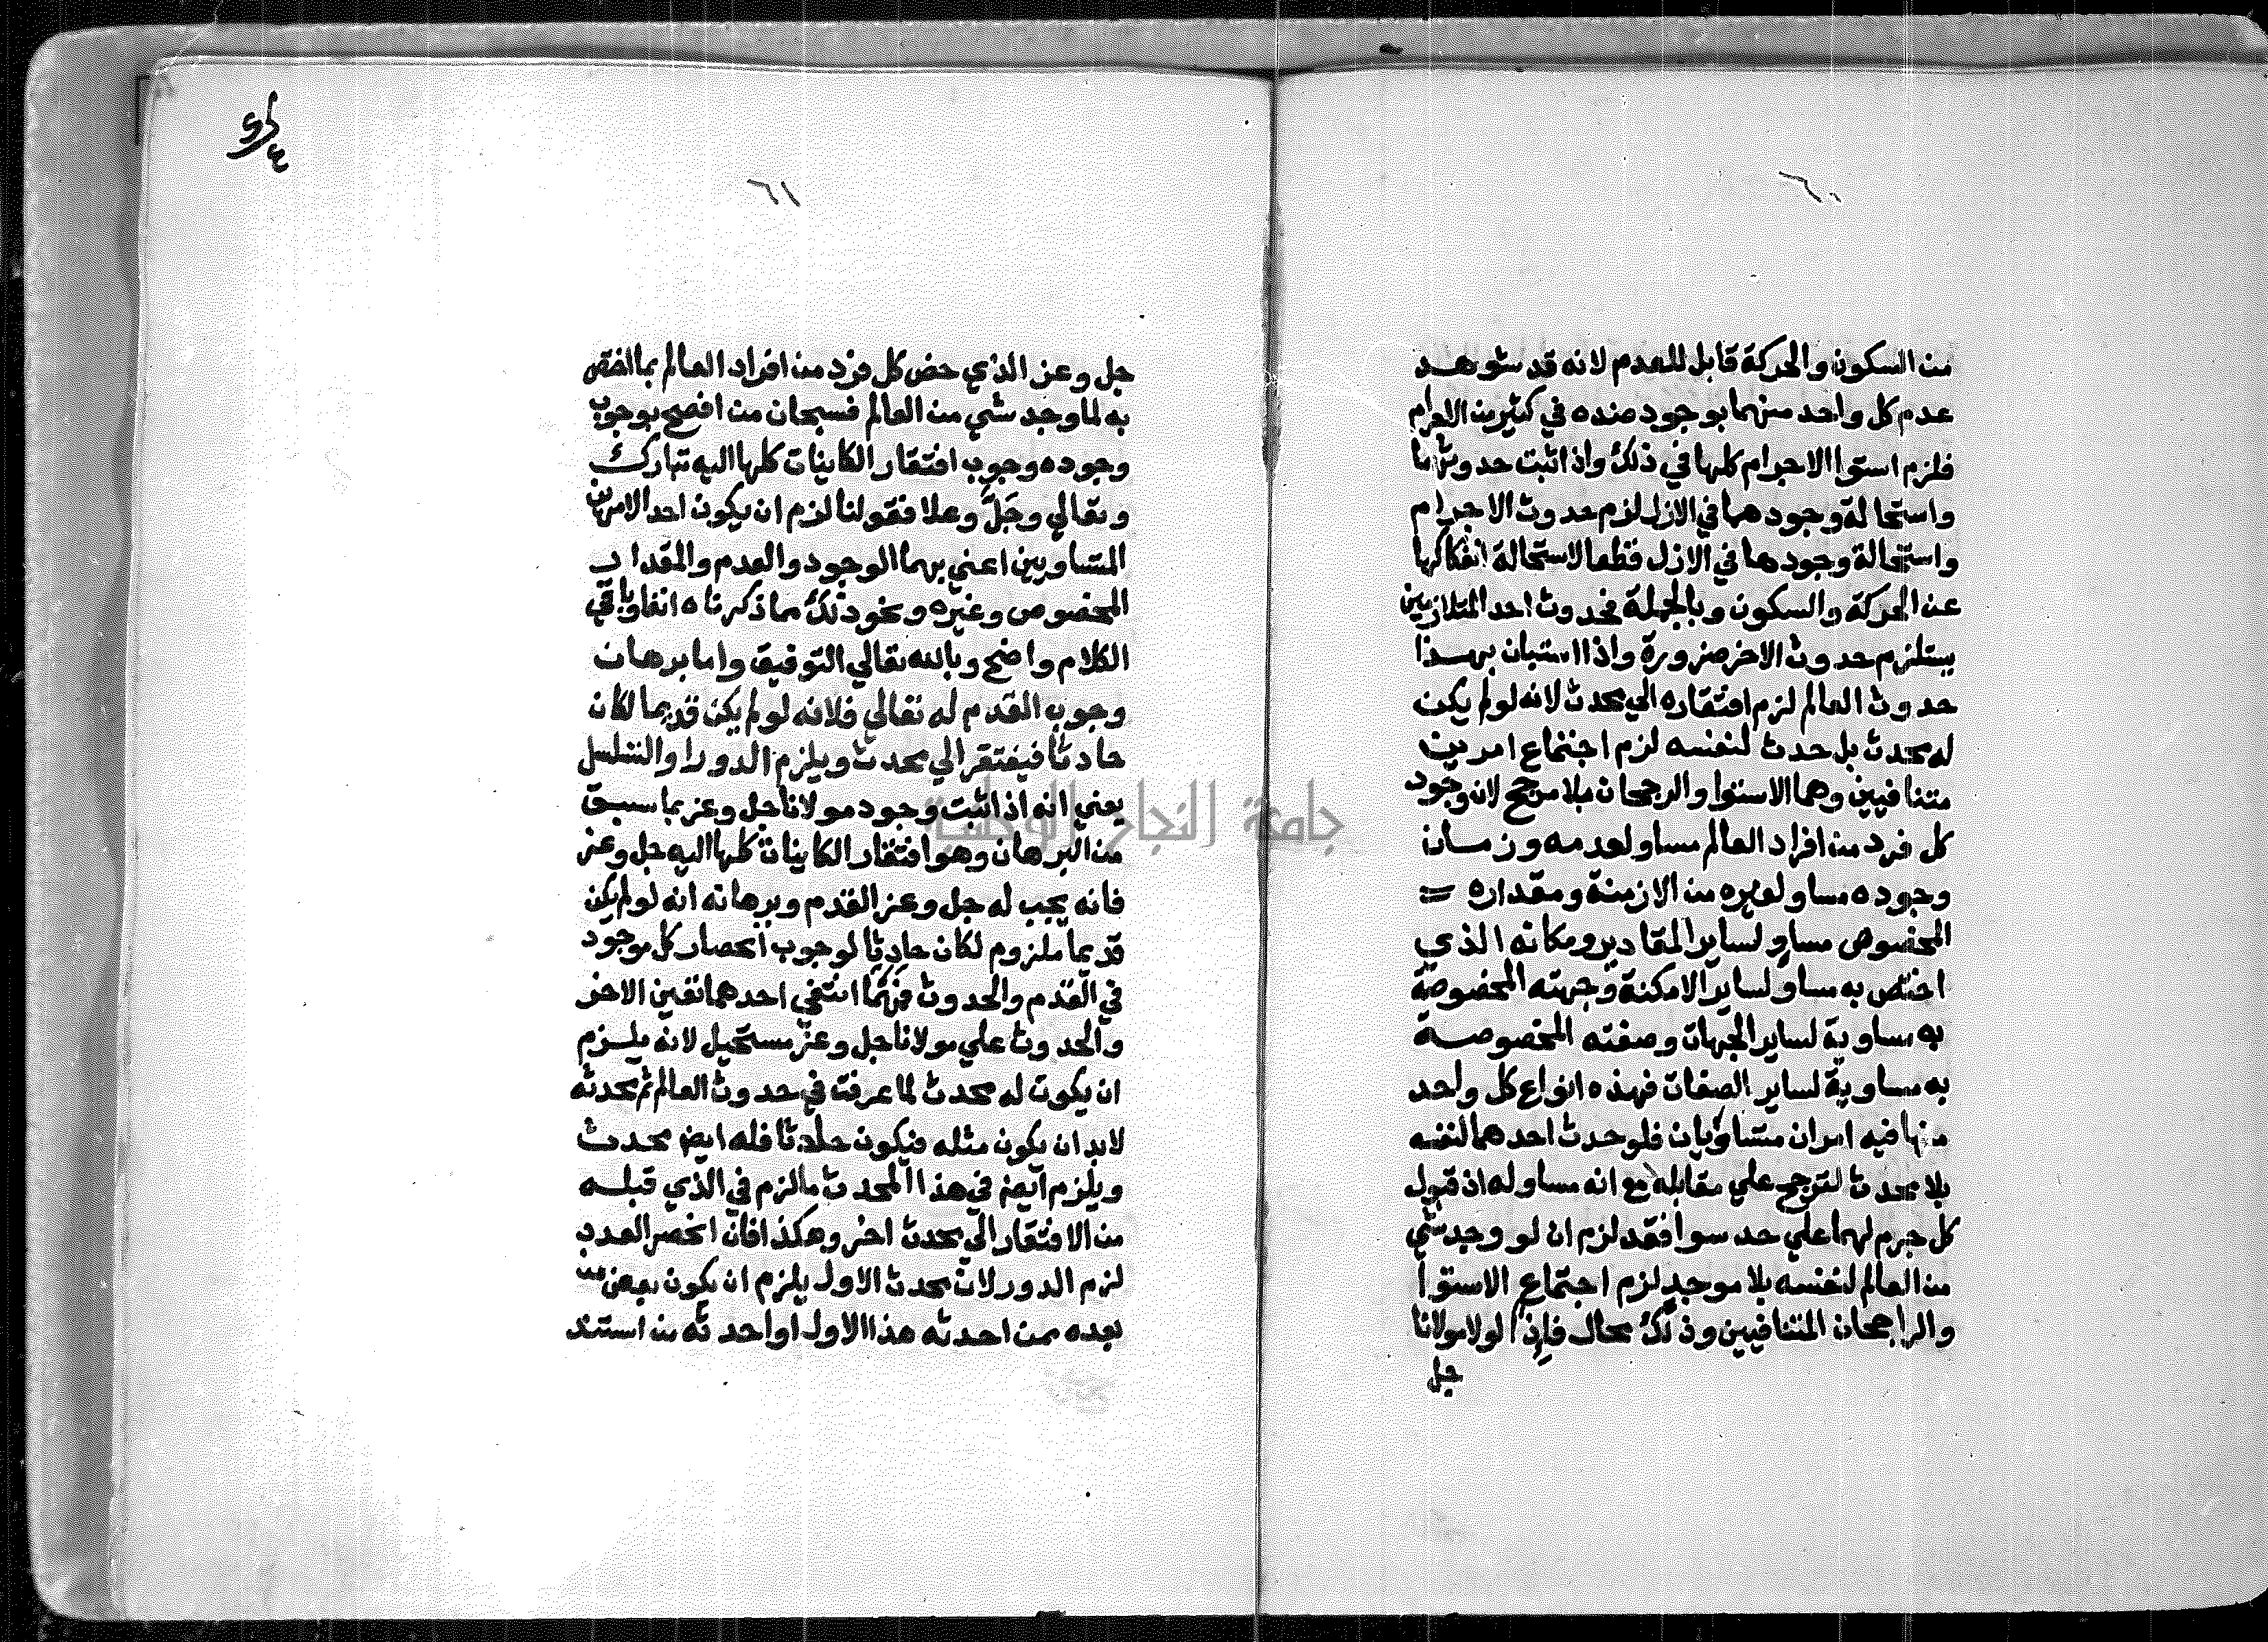 ٦٠
من السكون والحركة قابل للعدم لانه قد شوهد
عدم كل واحد منهما بوجود ضده في كثير من الاجرام
فلزم استوا الاجرام كلها في ذلك واذا ثبت حدوثهما
واستحالة وجودهما في الازل لزم حدوث الاجرام
واستحالة وجودها في الازل قطعا لاستحالة انفكاكها
عن الحركة والسكون وبالجملة فحدوث احد المتلازمين
يستلزم حدوث الاخر ضرورة واذا استبان بهذا
حدوث العالم لزم افتقاره الي محدث لانه لو لم يكن
له محدث بل حدث لنفسه لزم اجتماع امرين
متنافيين وهما الاستوا والرجحان بلا مرجح لان وجود
كل فرد من افراد العالم مساو لعدمه وزمان
وجوده مساو لغيره من الازمنة ومقداره
المخصوص مساو لساير المقادير ومكانه الذي
اختص به مساو لساير الامكنة وجهته المخصوصة
به مساوية لساير الجهات وصفته المخصوصة
به مساوية لساير الصفات فهذه انواع كل واحد
منها فيه امران متساويان فلو حدث احدهما لنفسه
بلا محدث لترجح علي مقابله مع انه مساو له اذ قبول
كل جرم لهما علي حد سوا فقد لزم ان لو وجد شي
من العالم لنفسه بلا موجد لزم اجتماع الاستوا
والراجحان المتنافيين وذلك محال فاذا لولا مولانا
جل
٦١
جل وعز الذي خص كل فرد من افراد العالم بما اختص
به لما وجد شي من العالم فسبحان من افصح بوجوب
وجوده وجوب افتقار الكاينات كلها اليه تبارك
وتعالي وجل وعلا فقولنا لزم ان يكون احد الامرين
المتساويين اعني بهما الوجود والعدم والمقدار
المخصوص وغيره ونحو ذلك مما ذكرناه انفا وباقي
الكلام واضح وبالله تعالي التوفيق واما برهان
وجوب القدم له تعالي فلانه لو لم يكن قديما لكان
حادثا فيفتقر الي محدث ويلزم الدور او التسلسل
يعني انه اذا ثبت وجود مولانا جل وعز بما سبق
من البرهان وهو افتقار الكاينات كلها اليه جل وعز
فانه يجب له جل وعز القدم وبرهانه انه لو لم يكن
قديما ملزوم لكان حادثا لوجوب انحصار كل موجود
في القدم والحدوث فمهما انتفي احدهما تعين الاخر
والحدوث علي مولانا جل وعز مستحيل لانه يلزم
ان يكون له محدث لما عرفت في حدوث العالم ثم محدثه
لابد ان يكون مثله فيكون حادثا فله ايض محدث
ويلزم ايض في هذا المحدث ما لزم في الذي قبله
من الافتقار الي محدث اخر وهكذا فان انحصر العدد
لزم الدور لان محدث الاول يلزم ان يكون بعض من
بعده ممن احدثه هذا الاول او احدثه من استند
جامعة النجاح الوطنية